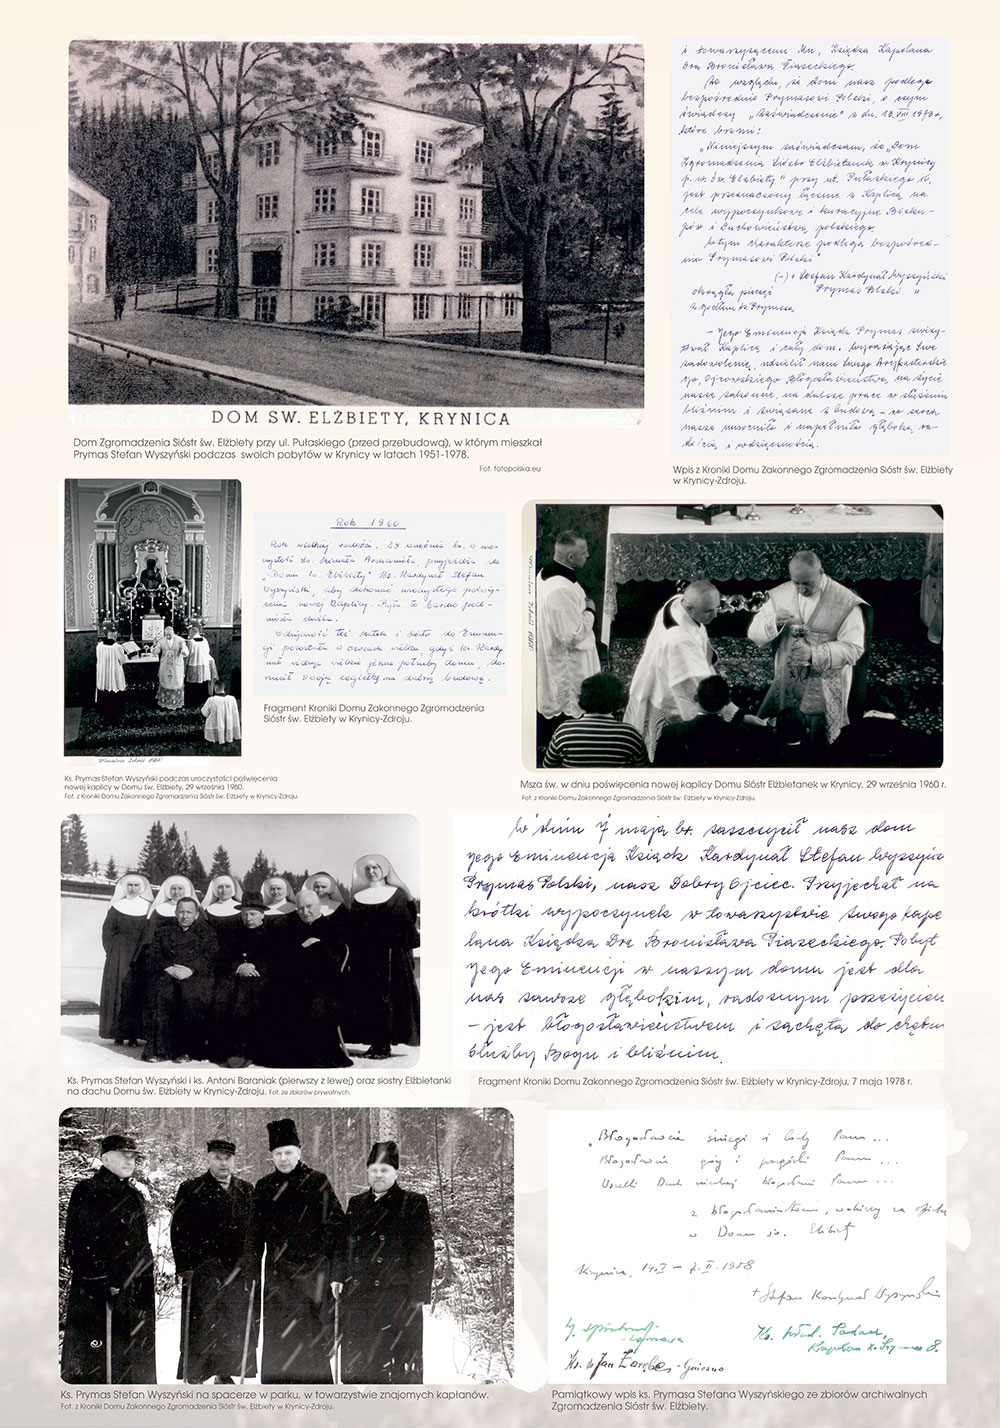 DOM SW. ELŻBIETY, KRYNICA
Dom Zgromadzenia Sióstr św. Elżbiety przy ul. Pułaskiego (przed przebudową), w którym mieszkał
Prymas Stefan Wyszyński podczas swoich pobytów w Krynicy w latach 1951-1978.
Fot. fotopolska.eu
i towarzyszącemu Mu, Księdza Kapelana
Dra Bronisława Piaseckiego.
Ze względu, że dom nasz podlega
bezpośrednio Prymasowi Polski, o czym
świadczy „Zaświadczenie" z dn. 18.VIII
które brzmi:
„Niniejszym zaświadczam, że „Dom
Zgromadzenia Sióstr Elżbietanek w Krynicy
p. w. św. Elżbiety" przy ul. Pułaskiego 16,
jest przeznaczony łącznie z Kaplicą na
cele wypoczynkowe i kuracyjne Bisku-
pów i Duchowieństwa polskiego.
W tym charakterze podlega bezpośred-
nio Prymasowi Polski"
(-) + Stefan Kardynał Wyszyński
okrągła pieczęć Prymas Polski "
z godłem ks Prymasa
- Jego Eminencja Ksiądz Prymas zwizy-
tował Kaplicę i cały dom. Wyrażając Swe
zadowolenie, udzielił nam Swego Arcypasterskie-
go, Ojcowskiego Błogosławieństwa, na życie
nasze zakonne, na dalsze prace w służeniu
bliźnim i związane z budową - co serca
nasze umocniło i napełniło głęboką ra-
dością i wdzięcznością.
Wpis z Kroniki Domu Zakonnego Zgromadzenia Sióstr św. Elżbiety
w Krynicy-Zdroju.
Krynica Zdrój 1960
Ks. Prymas Stefan Wyszyński podczas uroczystości poświęcenia
nowej kaplicy w Domu św. Elżbiety, 29 września 1960.
Fot. z Kroniki Domu Zakonnego Zgromadzenia Sióstr św. Elżbiety w Krynicy-Zdroju.
Rok 1960
Rok wielkiej radości. 29 września br. w uro-
czystość św. Michała Archanioła, przyjeżdża do
„Domu św. Elżbiety" Ks. Kardynał Stefan
Wyszyński, aby dokonać uroczystego poświę-
cenia nowej Kaplicy. Była to bardzo pod-
niosła chwila.
Wdzięczność też Matek i Sióstr do Eminen-
cji pozostała w sercach wielka, gdyż Ks. Kardy
nał widząc wielkie jeszcze potrzeby domu, do-
rzucił Swoją cegiełkę na dalszą budowę.
Fragment Kroniki Domu Zakonnego Zgromadzenia
Sióstr św. Elżbiety w Krynicy-Zdroju.
Krynica Zdrój 1960
Msza św. w dniu poświęcenia nowej kaplicy Domu Sióstr Elżbietanek w Krynicy, 29 września 1960 r.
Fot. z Kroniki Domu Zakonnego Zgromadzenia Sióstr św. Elżbiety w Krynicy-Zdroju.
Ks. Prymas Stefan Wyszyński i ks. Antoni Baraniak (pierwszy z lewej) oraz siostry Elżbietanki
na dachu Domu św. Elżbiety w Krynicy-Zdroju. Fot. ze zbiorów prywatnych.
W dniu 7 maja br. zaszczycił nasz dom
Jego Eminencja Ksiądz Kardynał Stefan Wyszyńs
Prymas Polski, nasz Dobry Ojciec. Przyjechał na
krótki wypoczynek w towarzystwie swego kape
lana Księdza Dra Bronisława Piaseckiego. Pobyt
Jego Eminencji w naszym domu jest dla
nas zawsze głębokim, radosnym przeżyciem
- jest błogosławieństwem i zachętą do chętn
służby Bogu i bliźnim.
Fragment Kroniki Domu Zakonnego Zgromadzenia Sióstr św. Elżbiety w Krynicy-Zdroju, 7 maja 1978 r.
Ks. Prymas Stefan Wyszyński na spacerze w parku, w towarzystwie znajomych kapłanów.
Fot. z Kroniki Domu Zakonnego Zgromadzenia Sióstr św. Elżbiety w Krynicy-Zdroju.
„Błogosławcie śniegi i lody Pana ...
Błogosławcie góry i pagórki Pana ...
Wszelki Duch niechaj błogosławi Pana ...
z błogosławieństwem, wdzięczny za opiekę
w Domu św. Elżbiety
Krynica, 14.I - 7.II. 1958
+ Stefan Kardynał Wyszyński
Ks. Jan Zaręba - Gniezno
Ks. Wład. Padacz,
Kapelan
Pamiątkowy wpis ks. Prymasa Stefana Wyszyńskiego ze zbiorów archiwalnych
Zgromadzenia Sióstr św. Elżbiety.